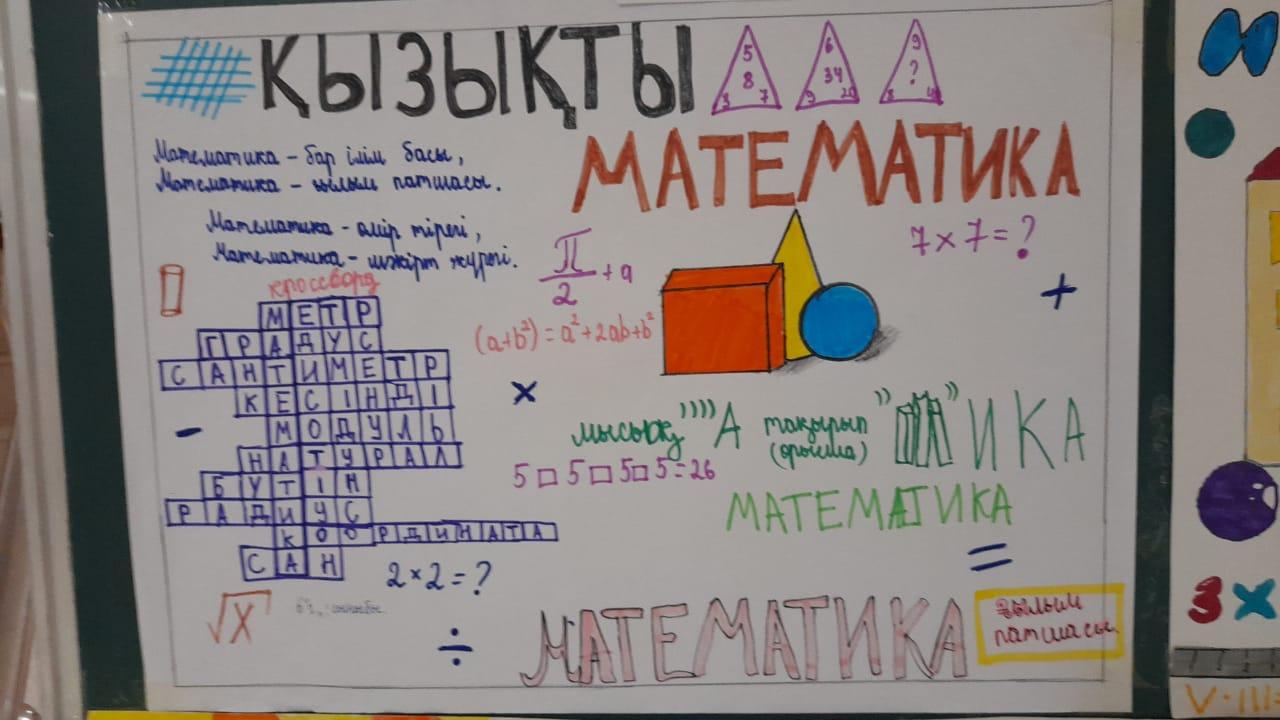 ҚЫЗЫҚТЫ
5
8
3 7
6
34
9 20
9
?
МАТЕМАТИКА
Математика - бар ілім басы,
Математика - ғылым патшасы.
Математика - өмір тірегі,
Математика - шәкірт жүрегі.
π/2 + a
7 × 7 = ?
+
кроссворд
МЕТР
ГРАДУС
САНТИМЕТР
КЕСІНДІ
МОДУЛЬ
НАТУРАЛ
БҮТІН
РАДИУС
КООРДИНАТА
САН
(a+b²) = a²+2ab+b²
×
-
мысық ""А тақырып " " ИКА
(орысша)
5 □ 5 □ 5 □ 5 = 26
МАТЕМАТИКА
=
2 × 2 = ?
√X
÷
МАТЕМАТИКА
ғылым
патшасы.
3 ×
V-III